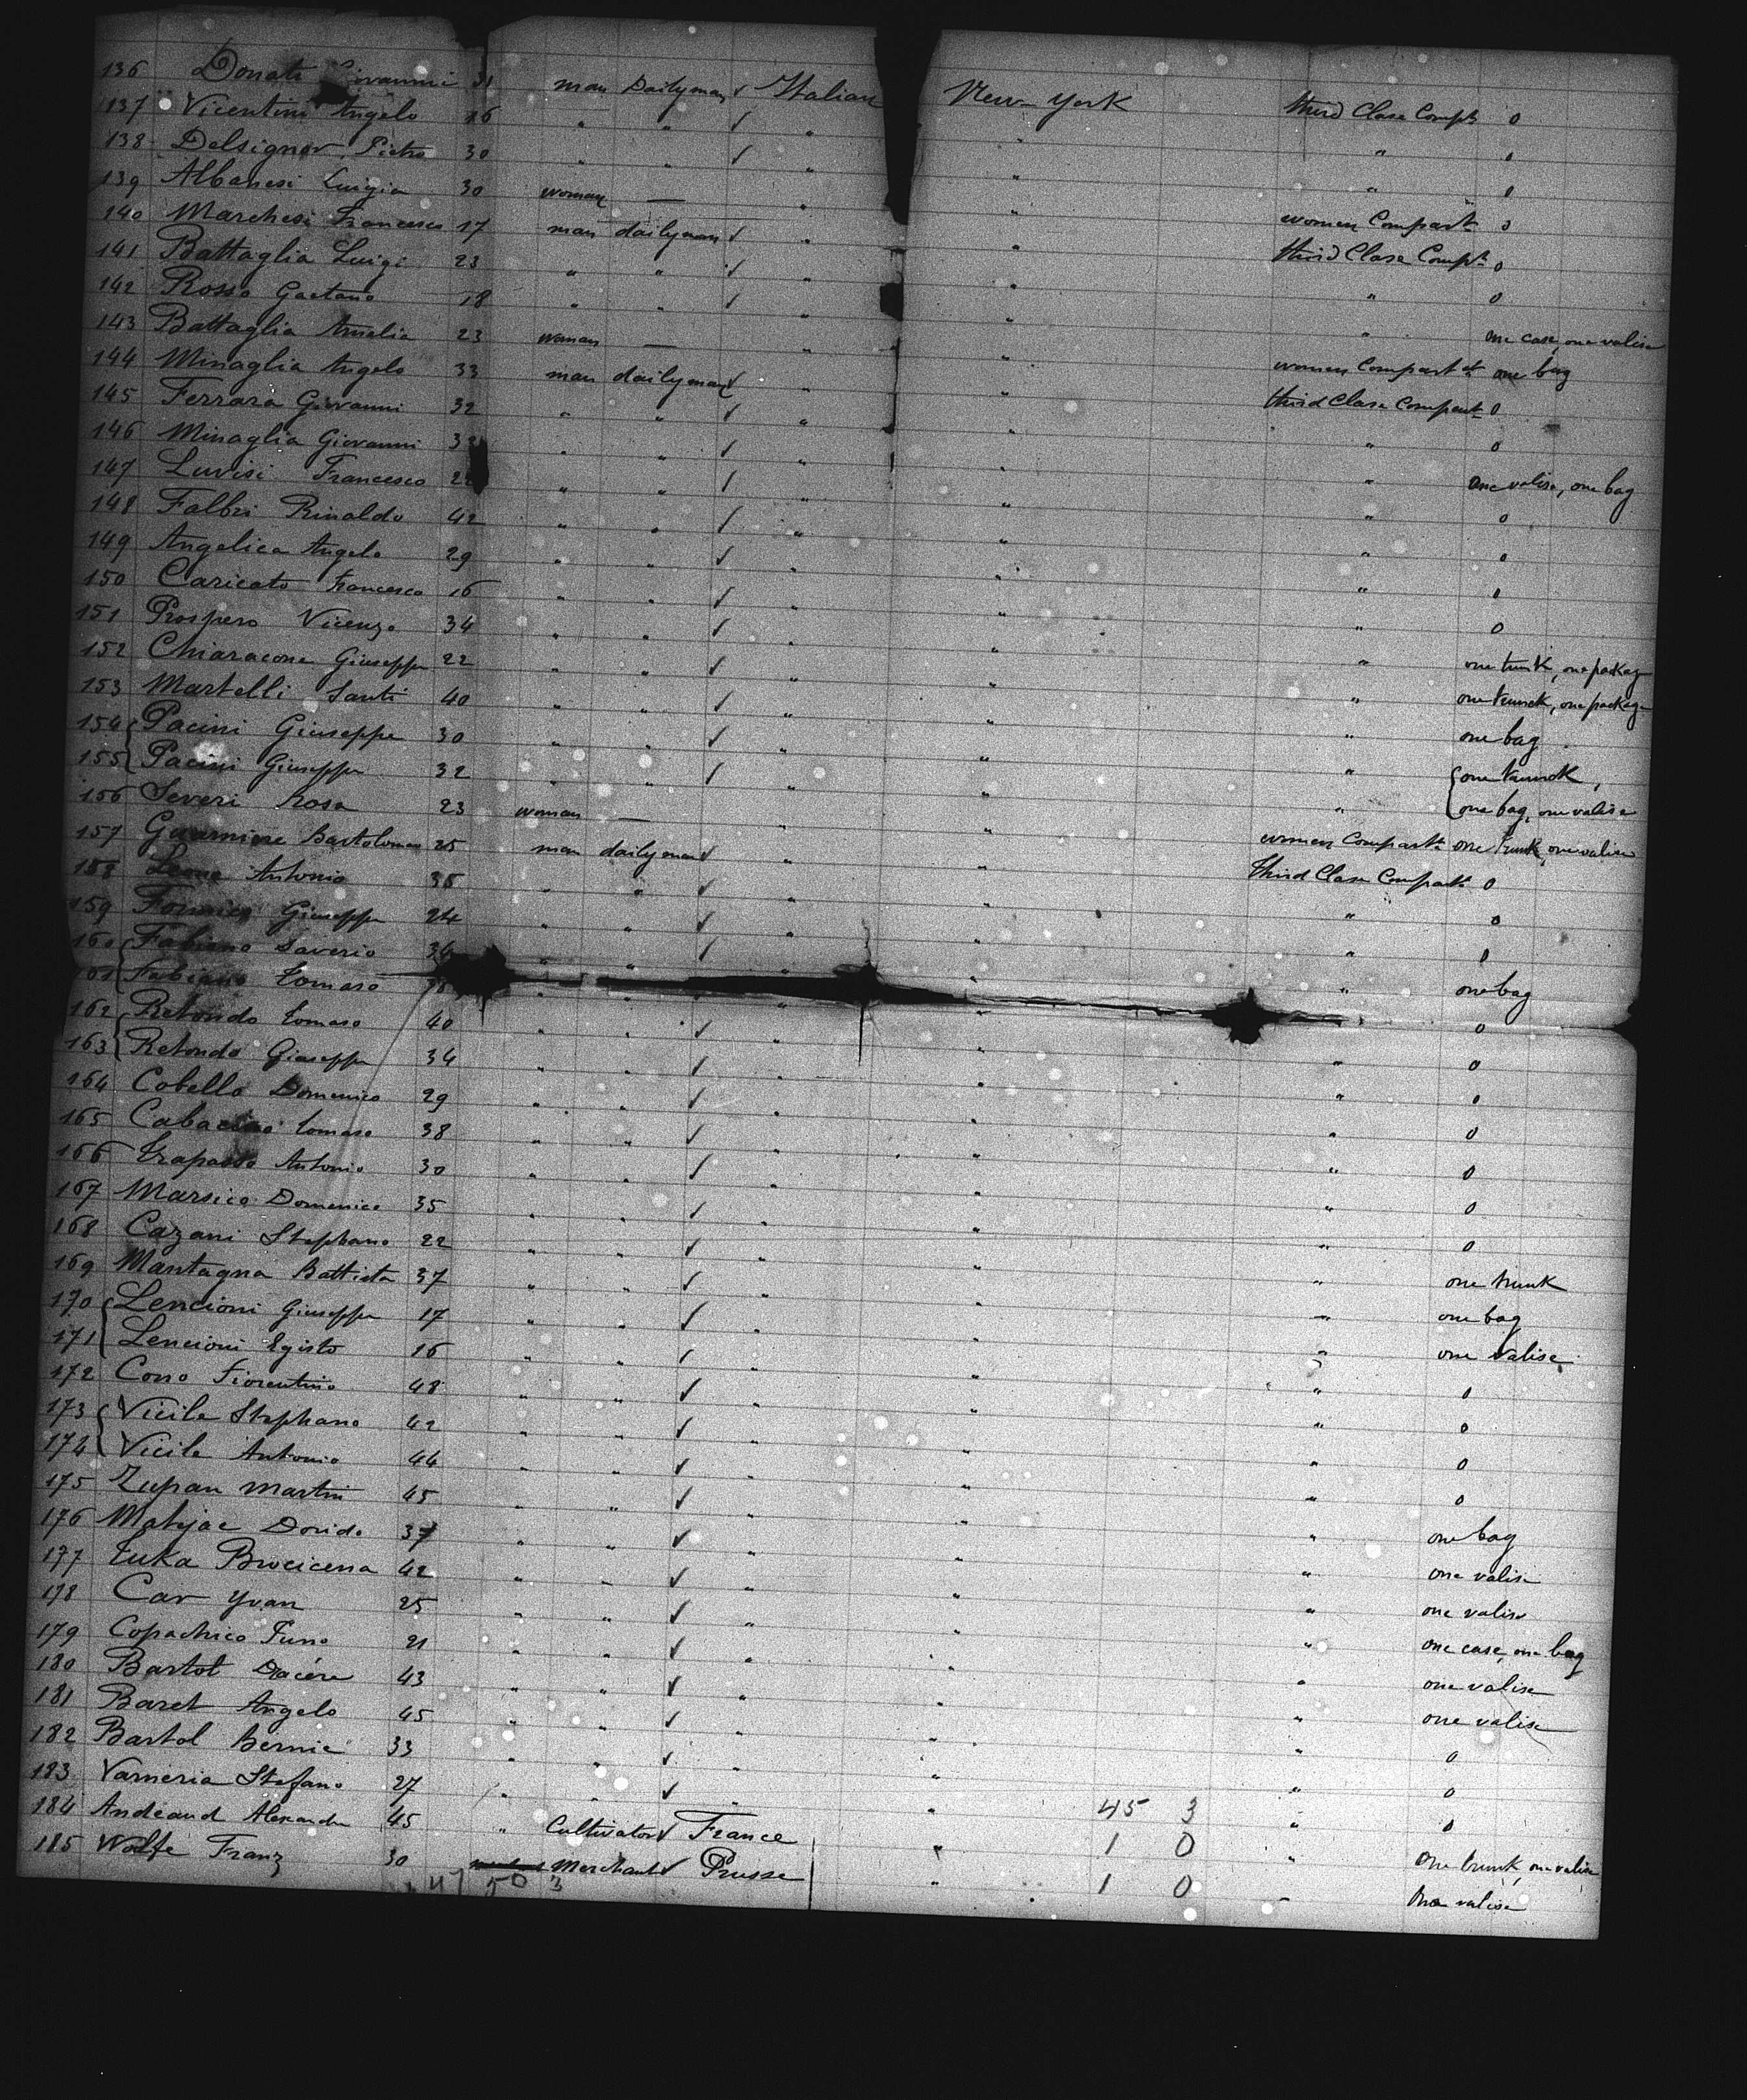 136 Donati Giovanni 31 man Dailyman ✓ Italian New York third Clase Compt 0
137 Vicentini Angelo 16 " " ✓ " " " 0
138 Delsignor Pietro 30 " " ✓ " " " 0
139 Albanesi Luigia 30 woman — " " women Compart 0
140 Marchesi Francesco 17 man dailyman ✓ " " third Clase Compt 0
141 Battaglia Luigi 23 " " ✓ " " " 0
142 Rosso Gaetano 18 " " ✓ " " " one case, one valise
143 Battaglia Amelia 23 woman — " " women Compart one bag
144 Minaglia Angelo 33 man dailyman ✓ " " third Clase Compart 0
145 Ferrara Giovanni 32 " " ✓ " " " 0
146 Minaglia Giovanni " " ✓ " " " one valise, one bag
147 Luvisi Francesco " " ✓ " " " 0
148 Falbri Rinaldo 42 " " ✓ " " " 0
149 Angelica Angelo 29 " " ✓ " " " 0
150 Caricato Francesco 16 " " ✓ " " " 0
151 Prospero Vicenzo 34 " " ✓ " " " one trunk, one package
152 Chiaracone Giuseppe 22 " " ✓ " " " one trunck, one package
153 Martelli Santi 40 " " ✓ " " " one bag
154 Pacini Giuseppe 30 " " ✓ " " " one trunck,
155 Pacini Giuseppe 32 " " ✓ " " " one bag, one valise
156 Severi Rosa 23 woman — " " women Compart one trunk, one valise
157 Guarniere Bartolomeo 25 man dailyman ✓ " " third Clase Compart 0
158 Leone Antonio 35 " " ✓ " " " 0
159 Giuseppe 24 " " ✓ " " " 0
160 Fabiano Saverio 36 " " ✓ " " " one bag
161 Fabiano Tomaso " " " " 0
162 Retondo Tomaso 40 " " ✓ " " 0
163 Retondo Giuseppe 34 " " ✓ " " " 0
164 Cobello Domenico 29 " " ✓ " " " 0
165 Tomaso 38 " " ✓ " " " 0
166 Trapasso Antonio 30 " " ✓ " " " 0
167 Marsico Domenico 35 " " ✓ " " " 0
168 Cazani Stephano 22 " " ✓ " " " one trunk
169 Mantagna Battista 37 " " ✓ " " " one bag
170 Lencioni Giuseppe 17 " " ✓ " " " one valise
171 Lencioni Egisto 16 " " ✓ " " " 0
172 Corso Fiorentino 48 " " ✓ " " " 0
173 Vicile Stephano 42 " " ✓ " " " 0
174 Vicile Antonio 44 " " ✓ " " " 0
175 Zupan Martin 45 " " ✓ " " " one bag
176 Matejac Dorido 37 " " ✓ " " " one valise
177 Tuka Brocicena 42 " " ✓ " " " one valise
178 Car Yvan 25 " " ✓ " " " one case, one bag
179 Copachico Funo 21 " " ✓ " " " one valise
180 Bartol 43 " " ✓ " " " one valise
181 Baret Angelo 45 " " ✓ " " " 0
182 Bartol Bernié 33 " " ✓ " " " 0
183 Varneria Stefano 27 " " ✓ " " 45 3 " 0
184 Andeaud Alexandre 45 " Cultivator ✓ France " 1 0 " One trunk, one valise
185 Wolfe Franz 30 Merchant ✓ Prusse " 1 0 " One valise
47 50 3